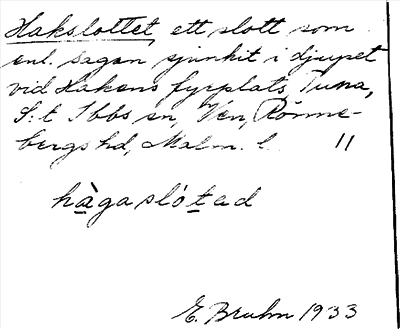 Hakslottet, ett slott som
enl. sagan sjunkit i djupet
vid Hakens fyrplats, Tuna,
S:t Ibbs sn, Ven, Rönne-
bergs hd, Malm. l. 11
hàgasló̀tad
E. Bruhn 1933